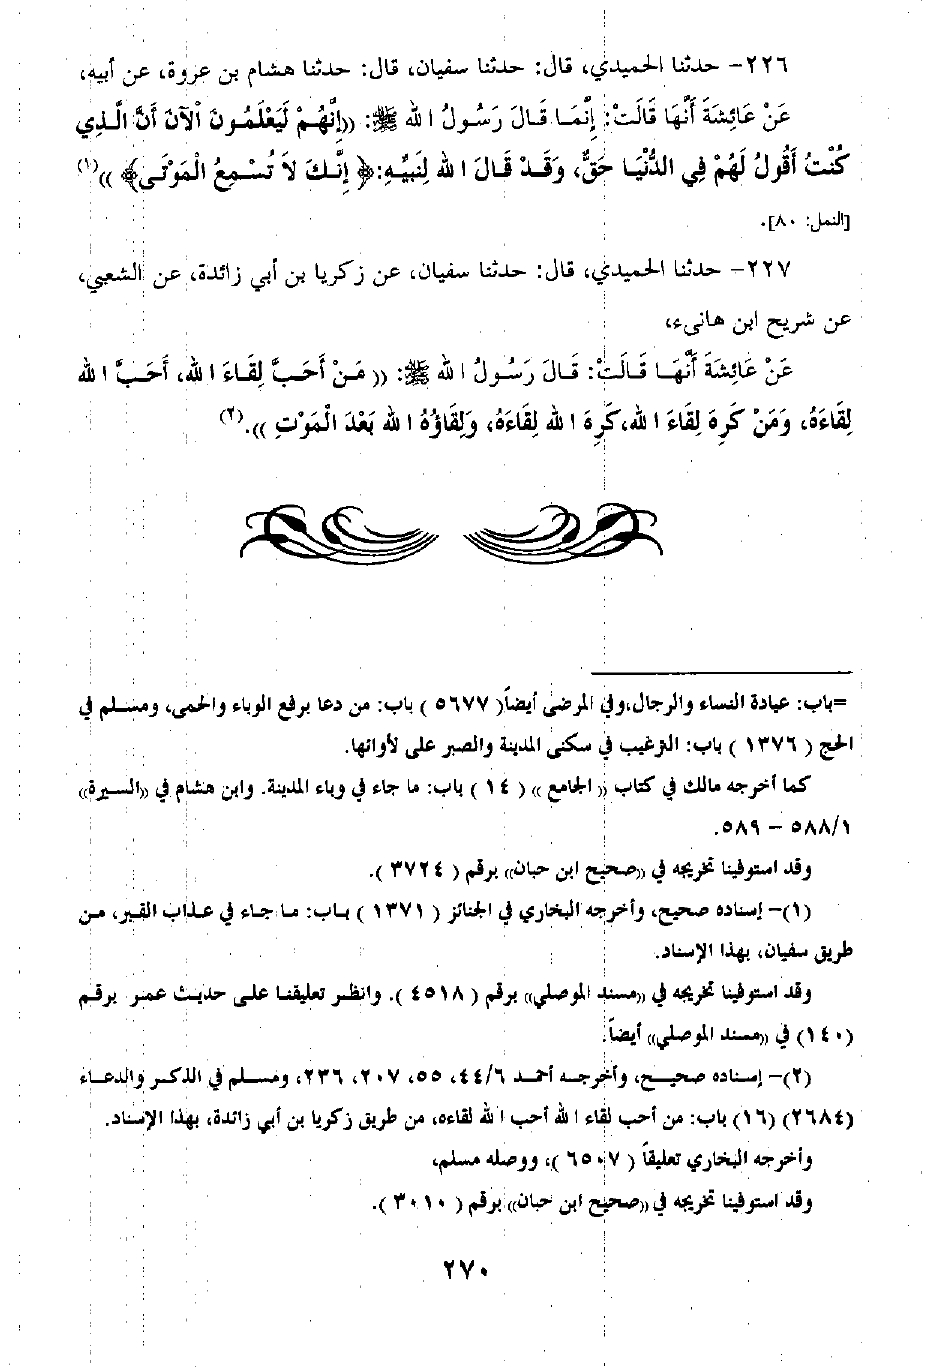 ٢٢٦- حدثنا الحميدي، قال: حدثنا سفيان، قال: حدثنا هشام بن عروة، عن أبيه،
عَنْ عَائِشَةَ أَنَّهَا قَالَتْ: إِنَّمَا قَالَ رَسُولُ اللهِ ﷺ: ((إِنَّهُمْ لَيَعْلَمُونَ الْآنَ أَنَّ الَّذِي
كُنْتُ أَقُولُ لَهُمْ فِي الدُّنْيَا حَقٌّ، وَقَدْ قَالَ اللهُ لِنَبِيِّهِ:﴿ إِنَّكَ لاَ تُسْمِعُ الْمَوْتَى﴾ ))(١)
[النمل: ٨٠].
٢٢٧- حدثنا الحميدي، قال: حدثنا سفيان، عن زكريا بن أبي زائدة، عن الشعبي،
عن شريح ابن هانىء،
عَنْ عَائِشَةَ أَنَّهَا قَالَتْ: قَالَ رَسُولُ اللهِ ﷺ: (( مَنْ أَحَبَّ لِقَاءَ اللهِ، أَحَبَّ اللهُ
لِقَاءَهُ، وَمَنْ كَرِهَ لِقَاءَ اللهِ،كَرِهَ اللهُ لِقَاءَهُ، وَلِقَاؤُهُ اللهَ بَعْدَ الْمَوْتِ )).(٢)
=باب: عيادة النساء والرجال،وفي المرضى أيضاً( ٥٦٧٧ ) باب: من دعا برفع الوباء والحمى، ومسلم في
الحج ( ١٣٧٦ ) باب: الترغيب في سكنى المدينة والصبر على لأوائها.
كما أخرجه مالك في كتاب (( الجامع )) ( ١٤ ) باب: ما جاء في وباء المدينة. وابن هشام في ((السيرة))
٥٨٨/١ - ٥٨٩.
وقد استوفينا تخريجه في ((صحيح ابن حبان)) برقم ( ٣٧٢٤ ).
(١)- إسناده صحيح، وأخرجه البخاري في الجنائز ( ١٣٧١ ) باب: ما جاء في عذاب القبر، من
طريق سفيان، بهذا الإسناد.
وقد استوفينا تخريجه في ((مسند الموصلي)) برقم ( ٤٥١٨ ). وانظر تعليقنا على حديث عمر برقم
(١٤٠) في ((مسند الموصلي)) أيضاً.
(٢)- إسناده صحيح، وأخرجه أحمد ٤٤/٦، ٥٥، ٢٠٧، ٢٣٦، ومسلم في الذكر والدعاء
(٢٦٨٤) (١٦) باب: من أحب لقاء الله أحب الله لقاءه، من طريق زكريا بن أبي زائدة، بهذا الإسناد.
وأخرجه البخاري تعليقاً ( ٦٥٠٧ )، ووصله مسلم،
وقد استوفينا تخريجه في ((صحيح ابن حبان)) برقم ( ٣٠١٠ ).
٢٧٠